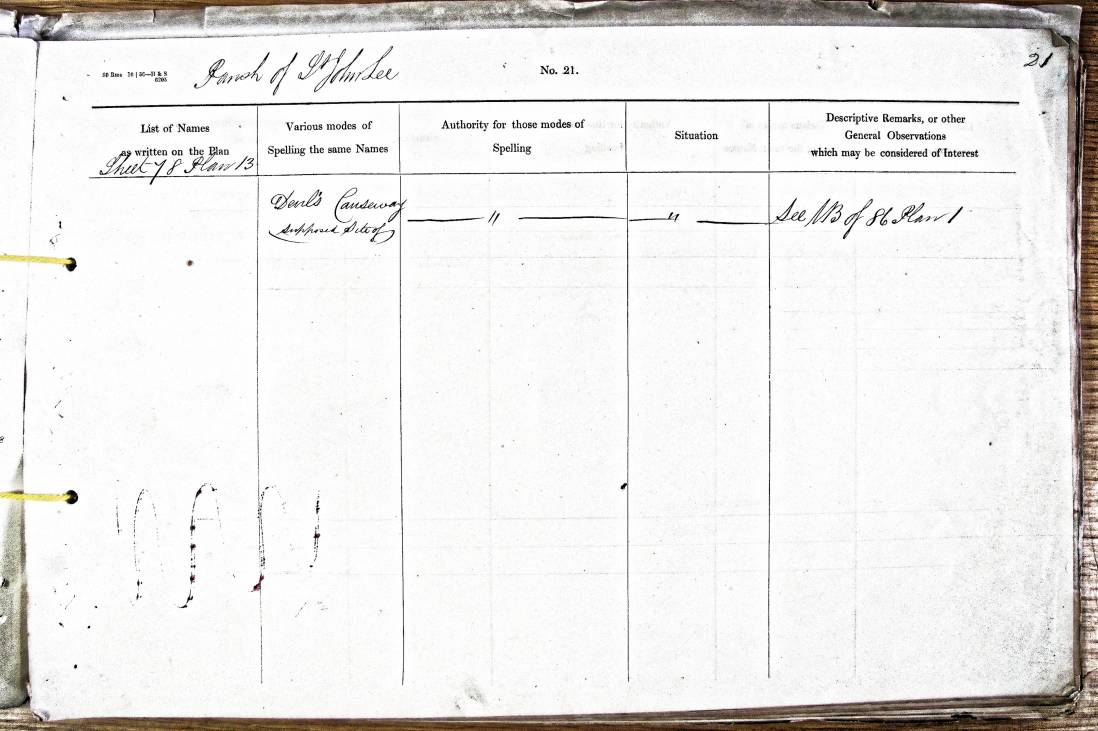 50 Bks 10 | 56—H & S
6203
Parish of St John Lee
No. 21.
21
List of Names
as written on the Plan
Various modes of
Spelling the same Names
Authority for those modes of
Spelling
Situation
Descriptive Remarks, or other
General Observations
which may be considered of Interest
Sheet 78 Plan 13
Devil's Causeway
Supposed Site of
"
"
See NB of 86 Plan 1